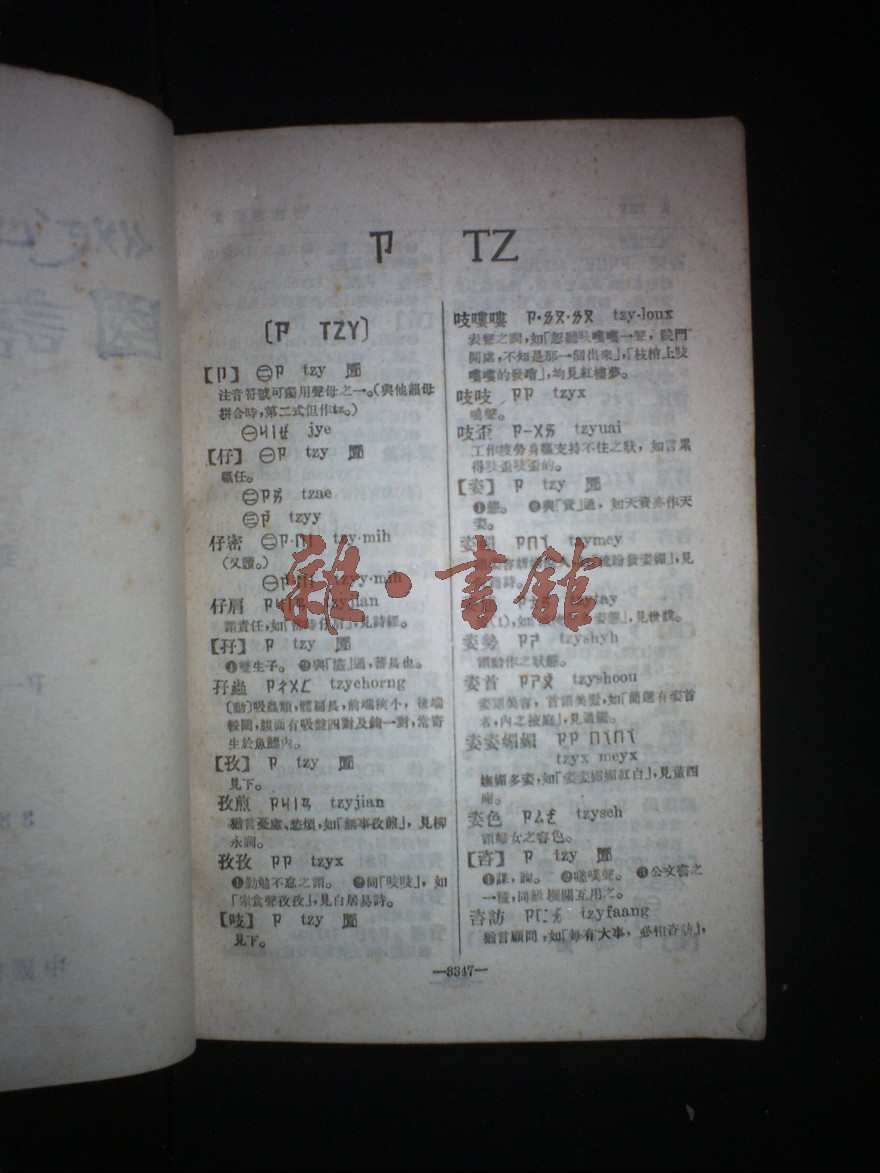 ㄗ TZ
〔ㄗ TZY〕
【卩】 ㊁ㄗ tzy 陰
注音符號可獨用聲母之一。(與他韻母
拼合時,第二式但作tz。)
㊀ㄐㄧㄝ jye
【仔】 ㊀ㄗ tzy 陰
職任。
㊁ㄗㄞ tzae
㊂ㄗ tzyy
仔密 ㊁ㄗ·ㄇㄧ tzy·mih
(又讀。)
㊀ㄗ·ㄇㄧ tzyy·mih
仔肩 ㄗㄐㄧㄢ tzyjian
謂責任,如 見詩經。
【孖】 ㄗ tzy 陰
❶雙生子。 ❷與「滋」通,蕃長也。
孖蟲 ㄗㄔㄨㄥ tzychorng
〔動〕吸蟲類,體扁長,前端狹小,後端
較闊,腹面有吸盤四對及鉤一對,常寄
生於魚鰓內。
【孜】 ㄗ tzy 陰
見下。
孜煎 ㄗㄐㄧㄢ tzyjian
猶言憂慮、愁煩,如「無事孜煎」,見柳
永詞。
孜孜 ㄗㄗ tzyx
❶勤勉不怠之謂。 ❷同「吱吱」,如
「寒食聲孜孜」,見白居易詩。
【吱】 ㄗ tzy 陰
見下。
吱嘍嘍 ㄗ·ㄌㄡ·ㄌㄡ tzy·loux
表聲之詞,如「忽聽吱嘍嘍一聲,院門
開處,不知是那一個出來」,「枝梢上吱
嘍嘍的發哨」,均見紅樓夢。
吱吱 ㄗㄗ tzyx
鳴聲。
吱歪 ㄗㄧㄨㄞ tzyuai
工作疲勞身軀支持不住之狀,如言累
得吱歪吱歪的。
【姿】 ㄗ tzy 陰
❶態。 ❷與「資」通,如天資亦作天
姿。
姿媚 ㄗㄇㄟ tzymey
姿媚」,見
詩。
tzytay
(1),如 態」,見世說。
姿勢 ㄗㄕ tzyshyh
謂動作之狀態。
姿首 ㄗㄕㄡ tzyshoou
姿謂美容,首謂美髮,如「簡選有姿首
者,內之掖庭」,見通鑑。
姿姿媚媚 ㄗㄗ ㄇㄟㄇㄟ
tzyx meyx
嫵媚多姿,如「姿姿媚媚紅白」,見董西
廂。
姿色 ㄗㄙㄜ tzyseh
謂婦女之容色。
【咨】 ㄗ tzy 陰
❶謀,詢。 ❷嗟嘆聲。 ❸公文書之
一種,同級機關互用之。
咨訪 ㄗㄈㄤ tzyfaang
猶言顧問,如「每有大事,必相咨訪」,
—3347—
雜·書館
國語